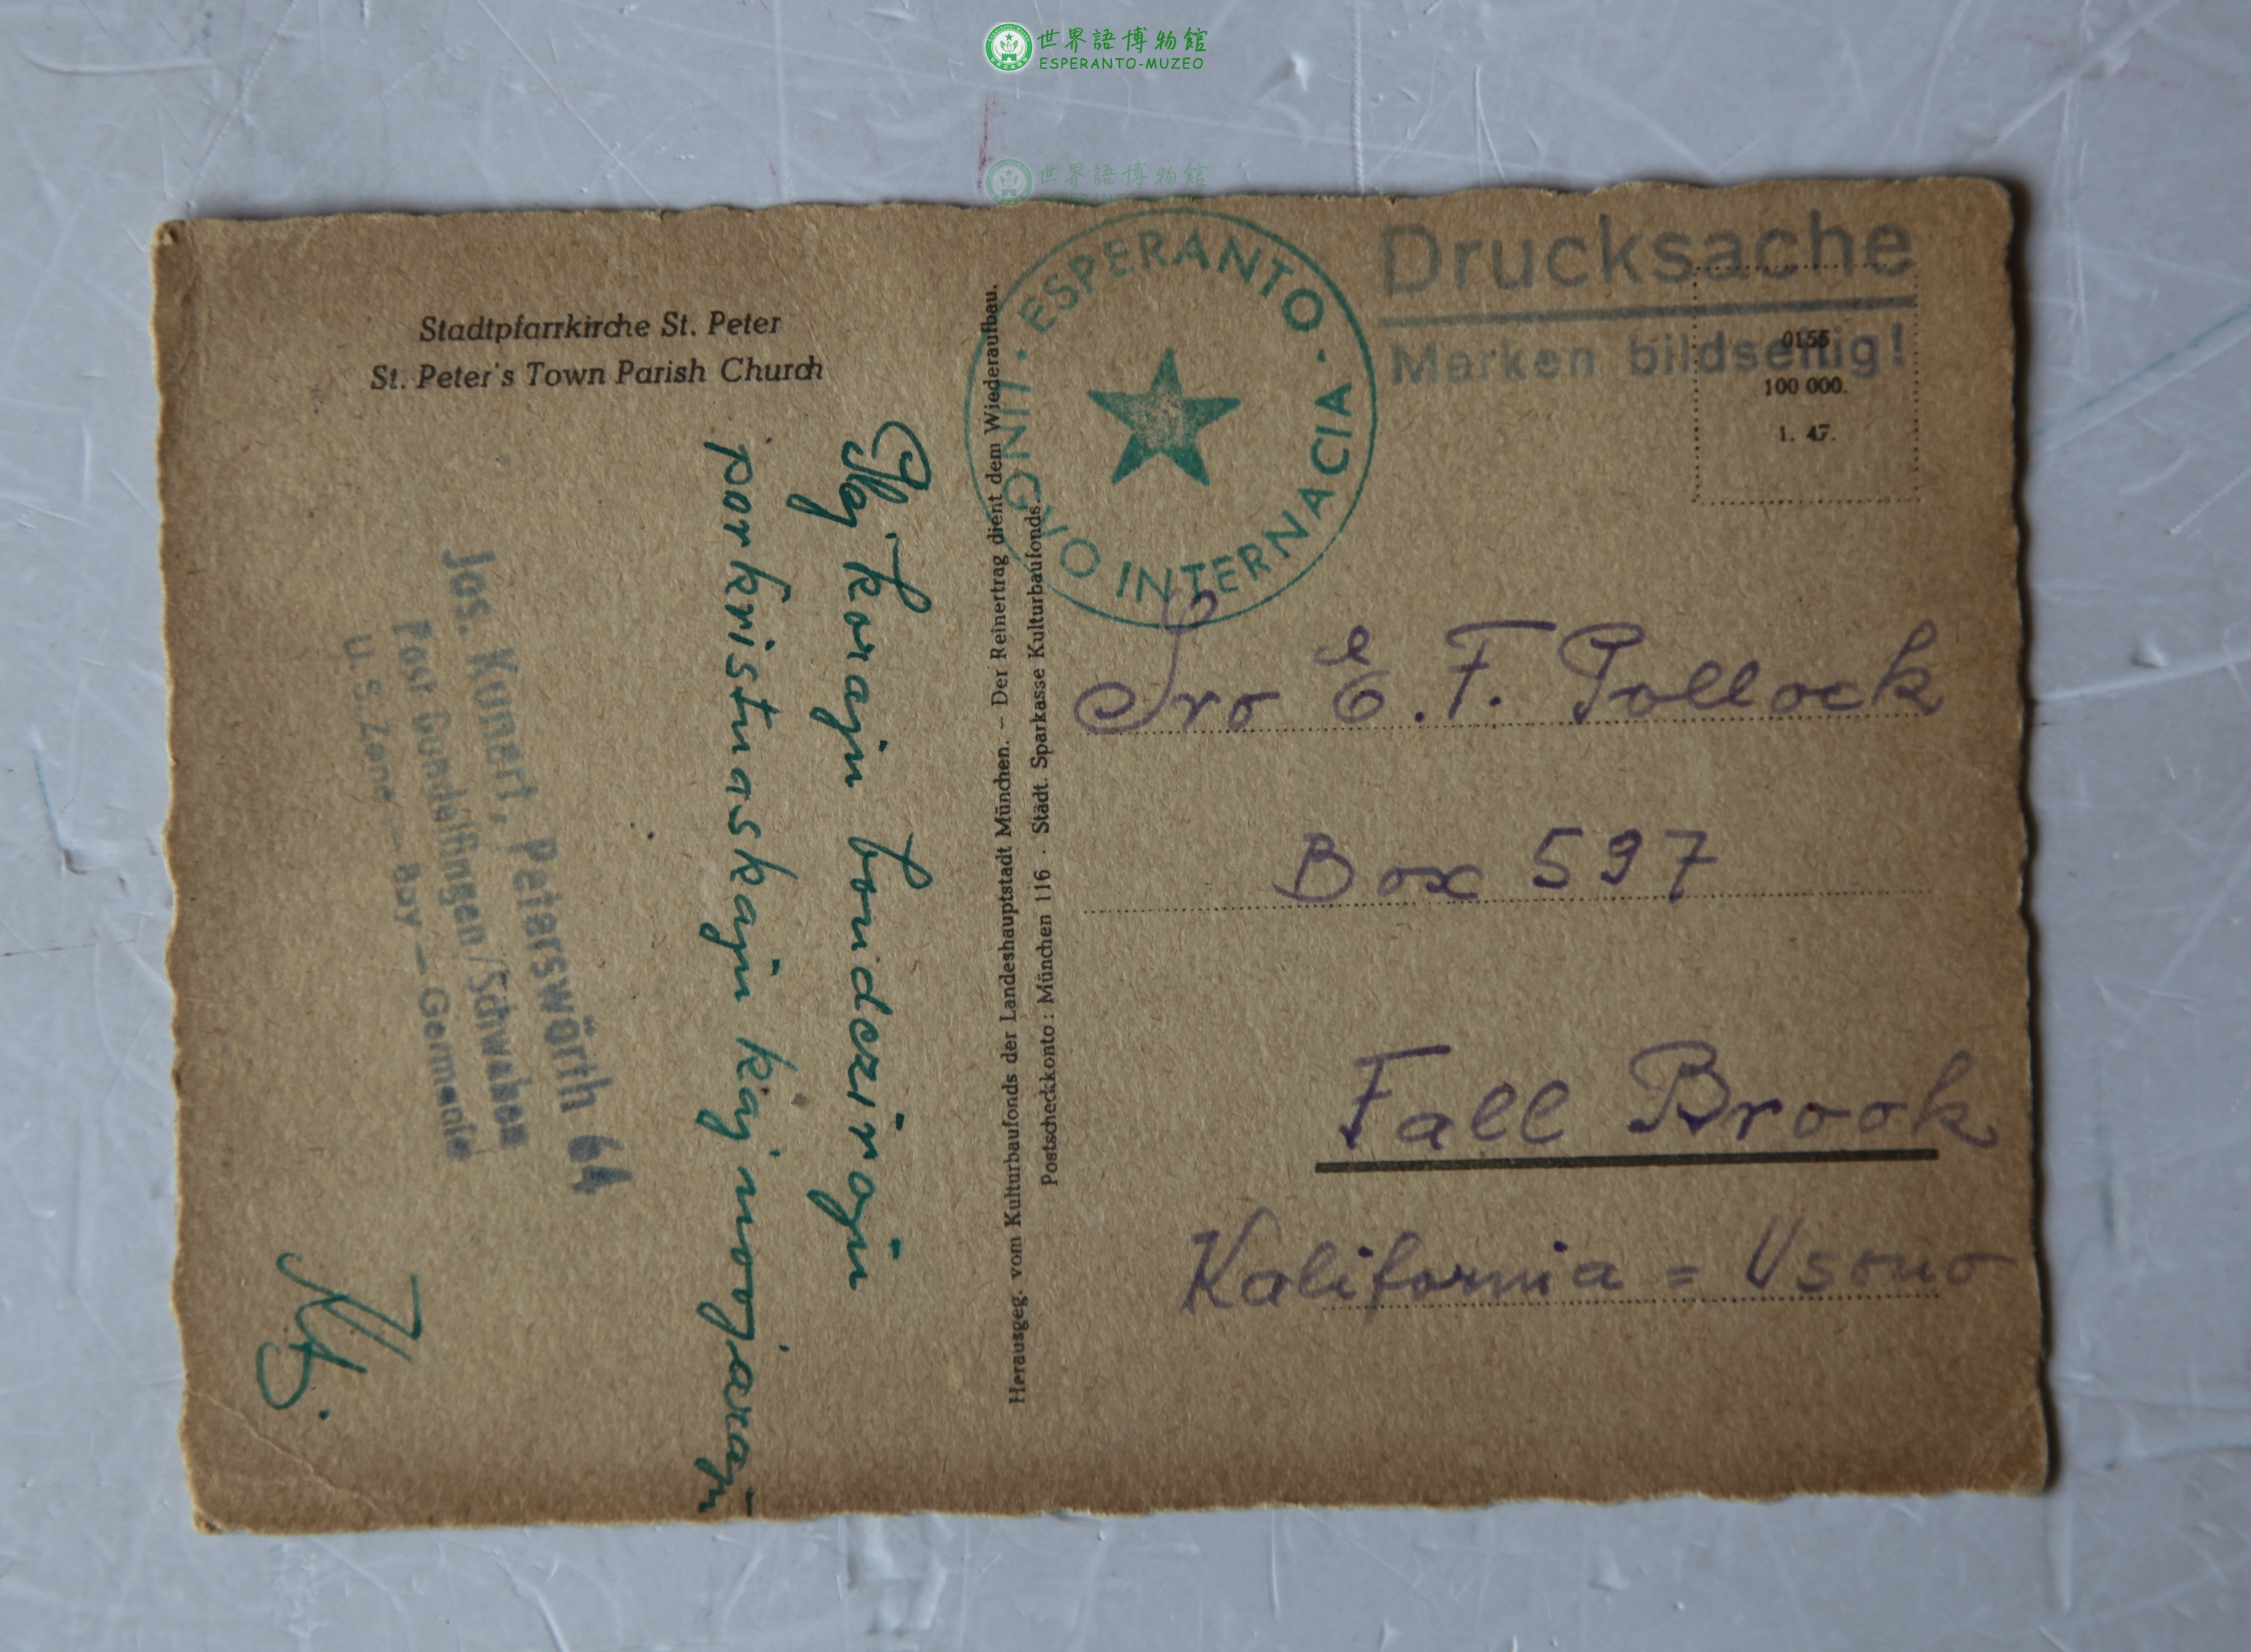 世界語博物館
ESPERANTO-MUZEO
世界語博物館
Stadtpfarrkirche St. Peter
St. Peter's Town Parish Church
Plej korajn bondezirojn
por kristnaskajn kaj novjarajn
Jos. Kunert, Peterswörth 64
Post Gundelfingen/Schwaben
U.S.Zone — Bay — Germanie
Herausgeg. vom Kulturbaufonds der Landeshauptstadt München. – Der Reinertrag dient dem Wiederaufbau.
Postscheckkonto: München 116 · Städt. Sparkasse Kulturbaufonds.
· ESPERANTO · LINGVO INTERNACIA
Drucksache
Marken bildseitig!
0155
100 000.
1. 47.
Sro E. F. Pollock
Box 597
Fall Brook
Kalifornia = Usono